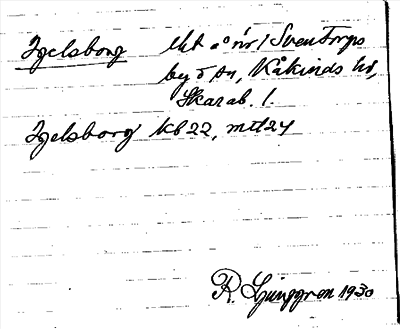 Igelsborg lht a° nr 1 Sventorps
by o sn, Kåkinds hd,
Skarab. l.
Igelsborg kb 22, mtl 24
R. Ljunggren 1930